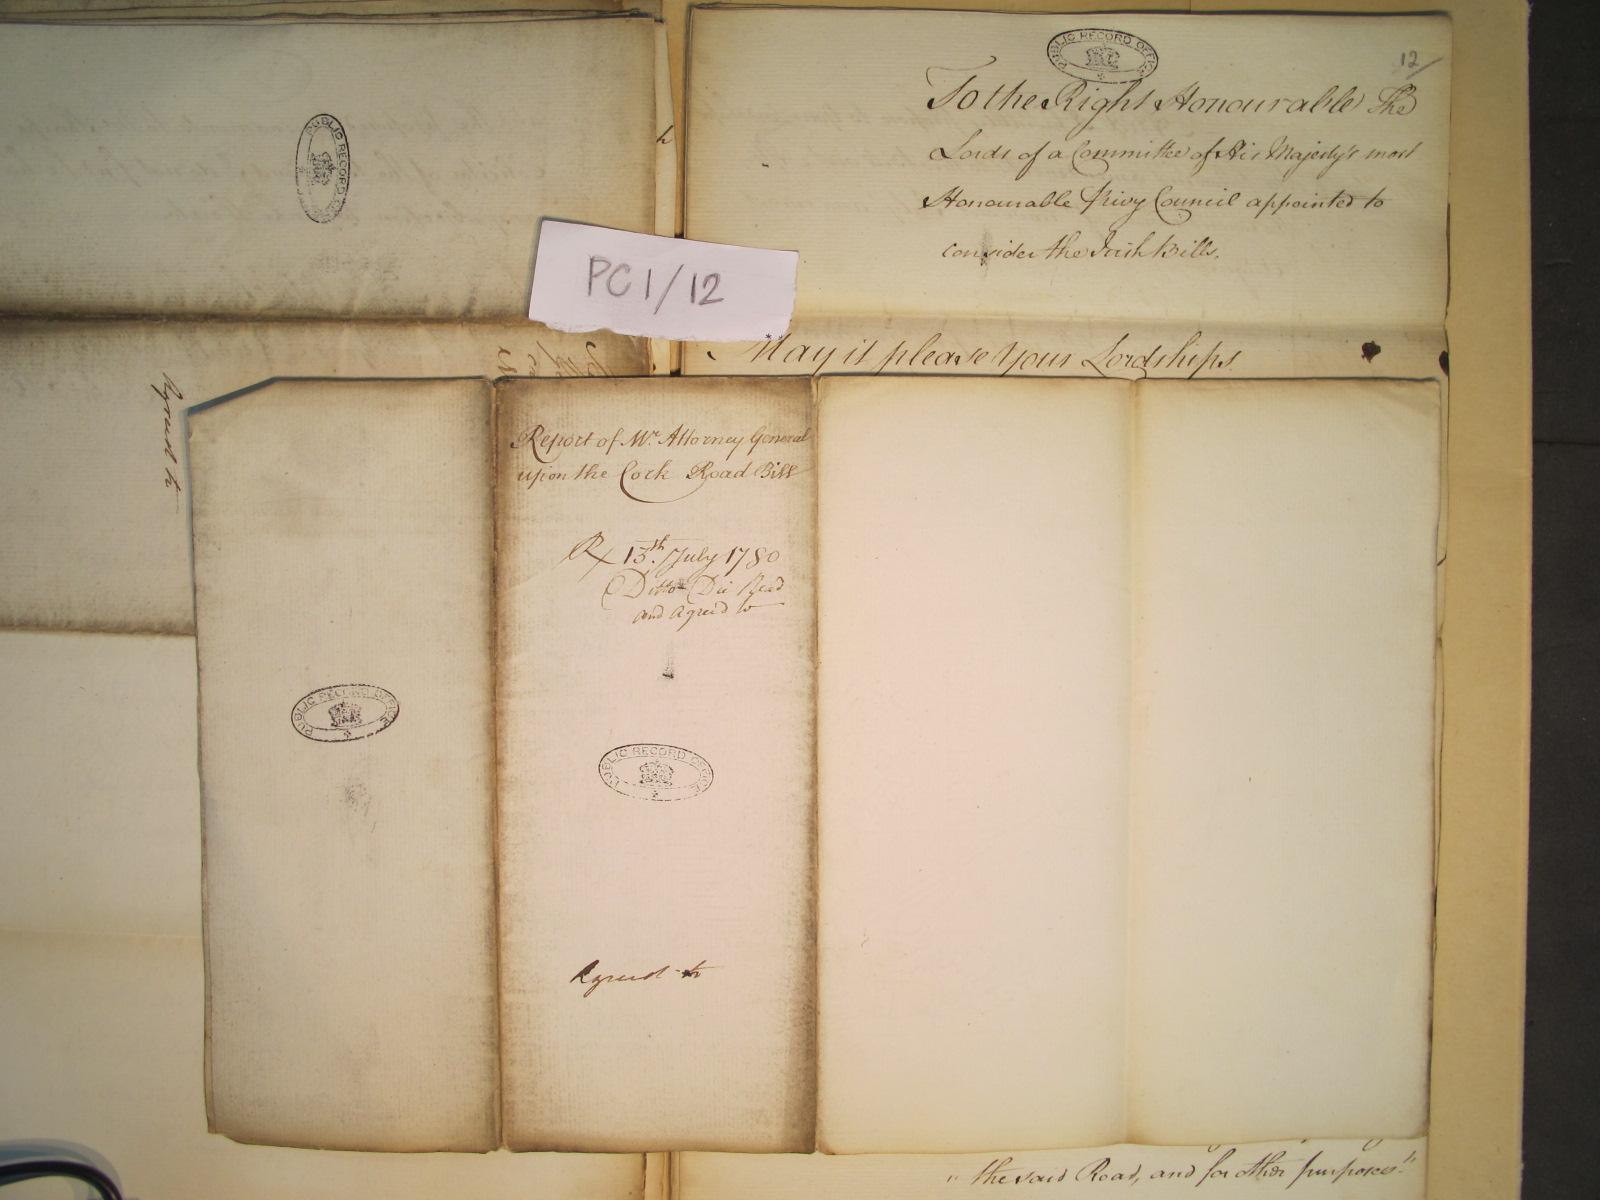 12
To the Right Honourable The
Lords of a Committee of His Majesty's most
Honourable Privy Council appointed to
consider the Irish Bills.
May it please Your Lordships
PC1/12
Report of Mr. Attorney General
upon the Cork Road Bill
Rx 13th. July 1780
Ditto Die Read
and Agreed to
Agreed to
Agreed to
"the said Road, and for other purposes."
PUBLIC RECORD OFFICE
PUBLIC RECORD OFFICE
PUBLIC RECORD OFFICE
PUBLIC RECORD OFFICE